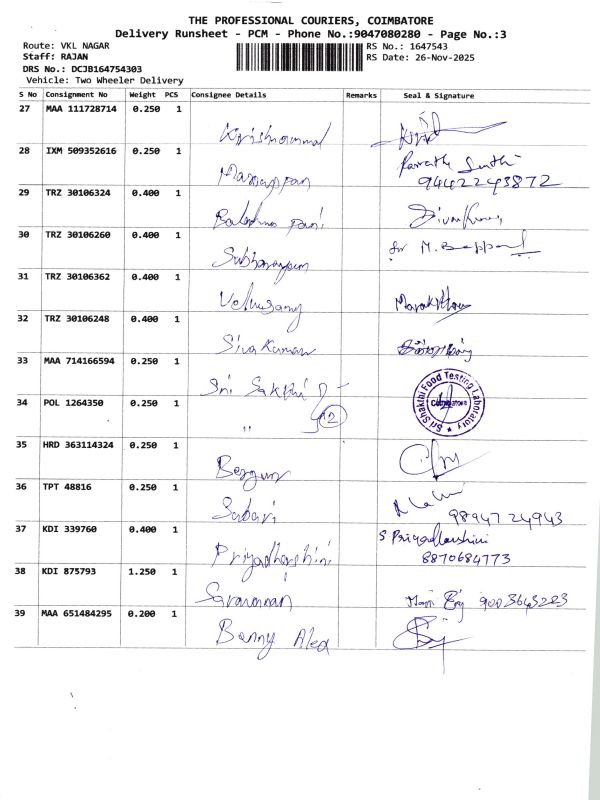 THE PROFESSIONAL COURIERS, COIMBATORE
Delivery Runsheet - PCM - Phone No.:9047080280 - Page No.:3
Route: VKL NAGAR
RS No.: 1647543
Staff: RAJAN
RS Date: 26-Nov-2025
DRS No.: DCJB164754303
Vehicle: Two Wheeler Delivery
S No Consignment No Weight PCS Consignee Details Remarks Seal & Signature
27 MAA 111728714 0.250 1
28 IXM 509352616 0.250 1
9442243872
29 TRZ 30106324 0.400 1
30 TRZ 30106260 0.400 1
31 TRZ 30106362 0.400 1
Velusamy
32 TRZ 30106248 0.400 1
Siva Kumar
33 MAA 714166594 0.250 1
Sri Sakthi
Sri Shakthi Food Testing Laboratory
Coimbatore
34 POL 1264350 0.250 1
" 2
35 HRD 363114324 0.250 1
36 TPT 48816 0.250 1
Sabari
98947 24943
37 KDI 339760 0.400 1
Priyadharshini
S Priyadharshini
8870684773
38 KDI 875793 1.250 1
Saravanan
39 MAA 651484295 0.200 1
Benny Alex